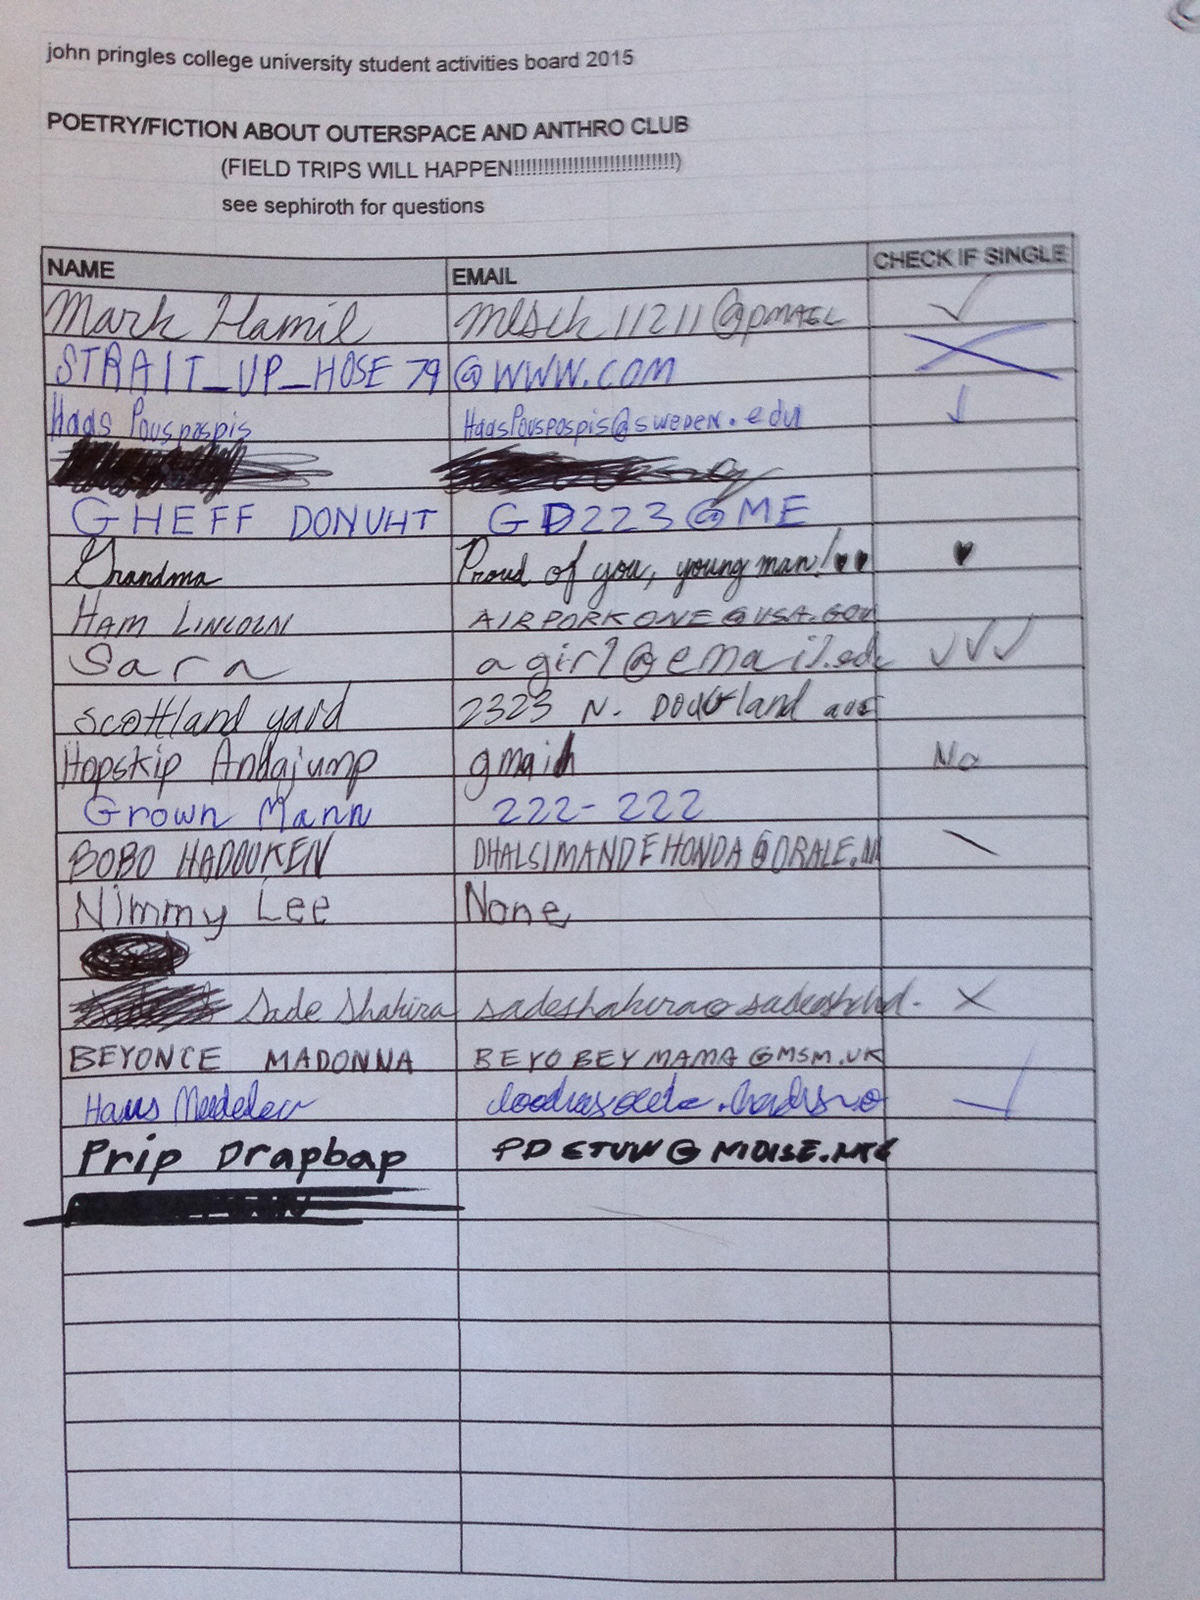 john pringles college university student activities board 2015
POETRY/FICTION ABOUT OUTERSPACE AND ANTHRO CLUB
(FIELD TRIPS WILL HAPPEN!!!!!!!!!!!!!!!!!!!!!!!!!!!!)
see sephiroth for questions
NAME EMAIL CHECK IF SINGLE
Mark Hamil mlsck11211@pmail
STRAIT_UP_HOSE79 @WWW.COM
Haas Pouspospis HaasPouspospis@sweden.edu
GHEFF DONUHT GD223@ME
Grandma Proud of you, young man!
HAM LINCOLN AIRPORKONE@USA.GOV
Sara agirl@email.edu
Scottland yard 2323 N.
Hopskip Andajump gmail No
Grown Mann 222-222
BOBO HADOUKEN
Nimmy Lee None
Sade Shakira
BEYONCE MADONNA BEYOBEYMAMA@MSM.UK
Prip Drapbap